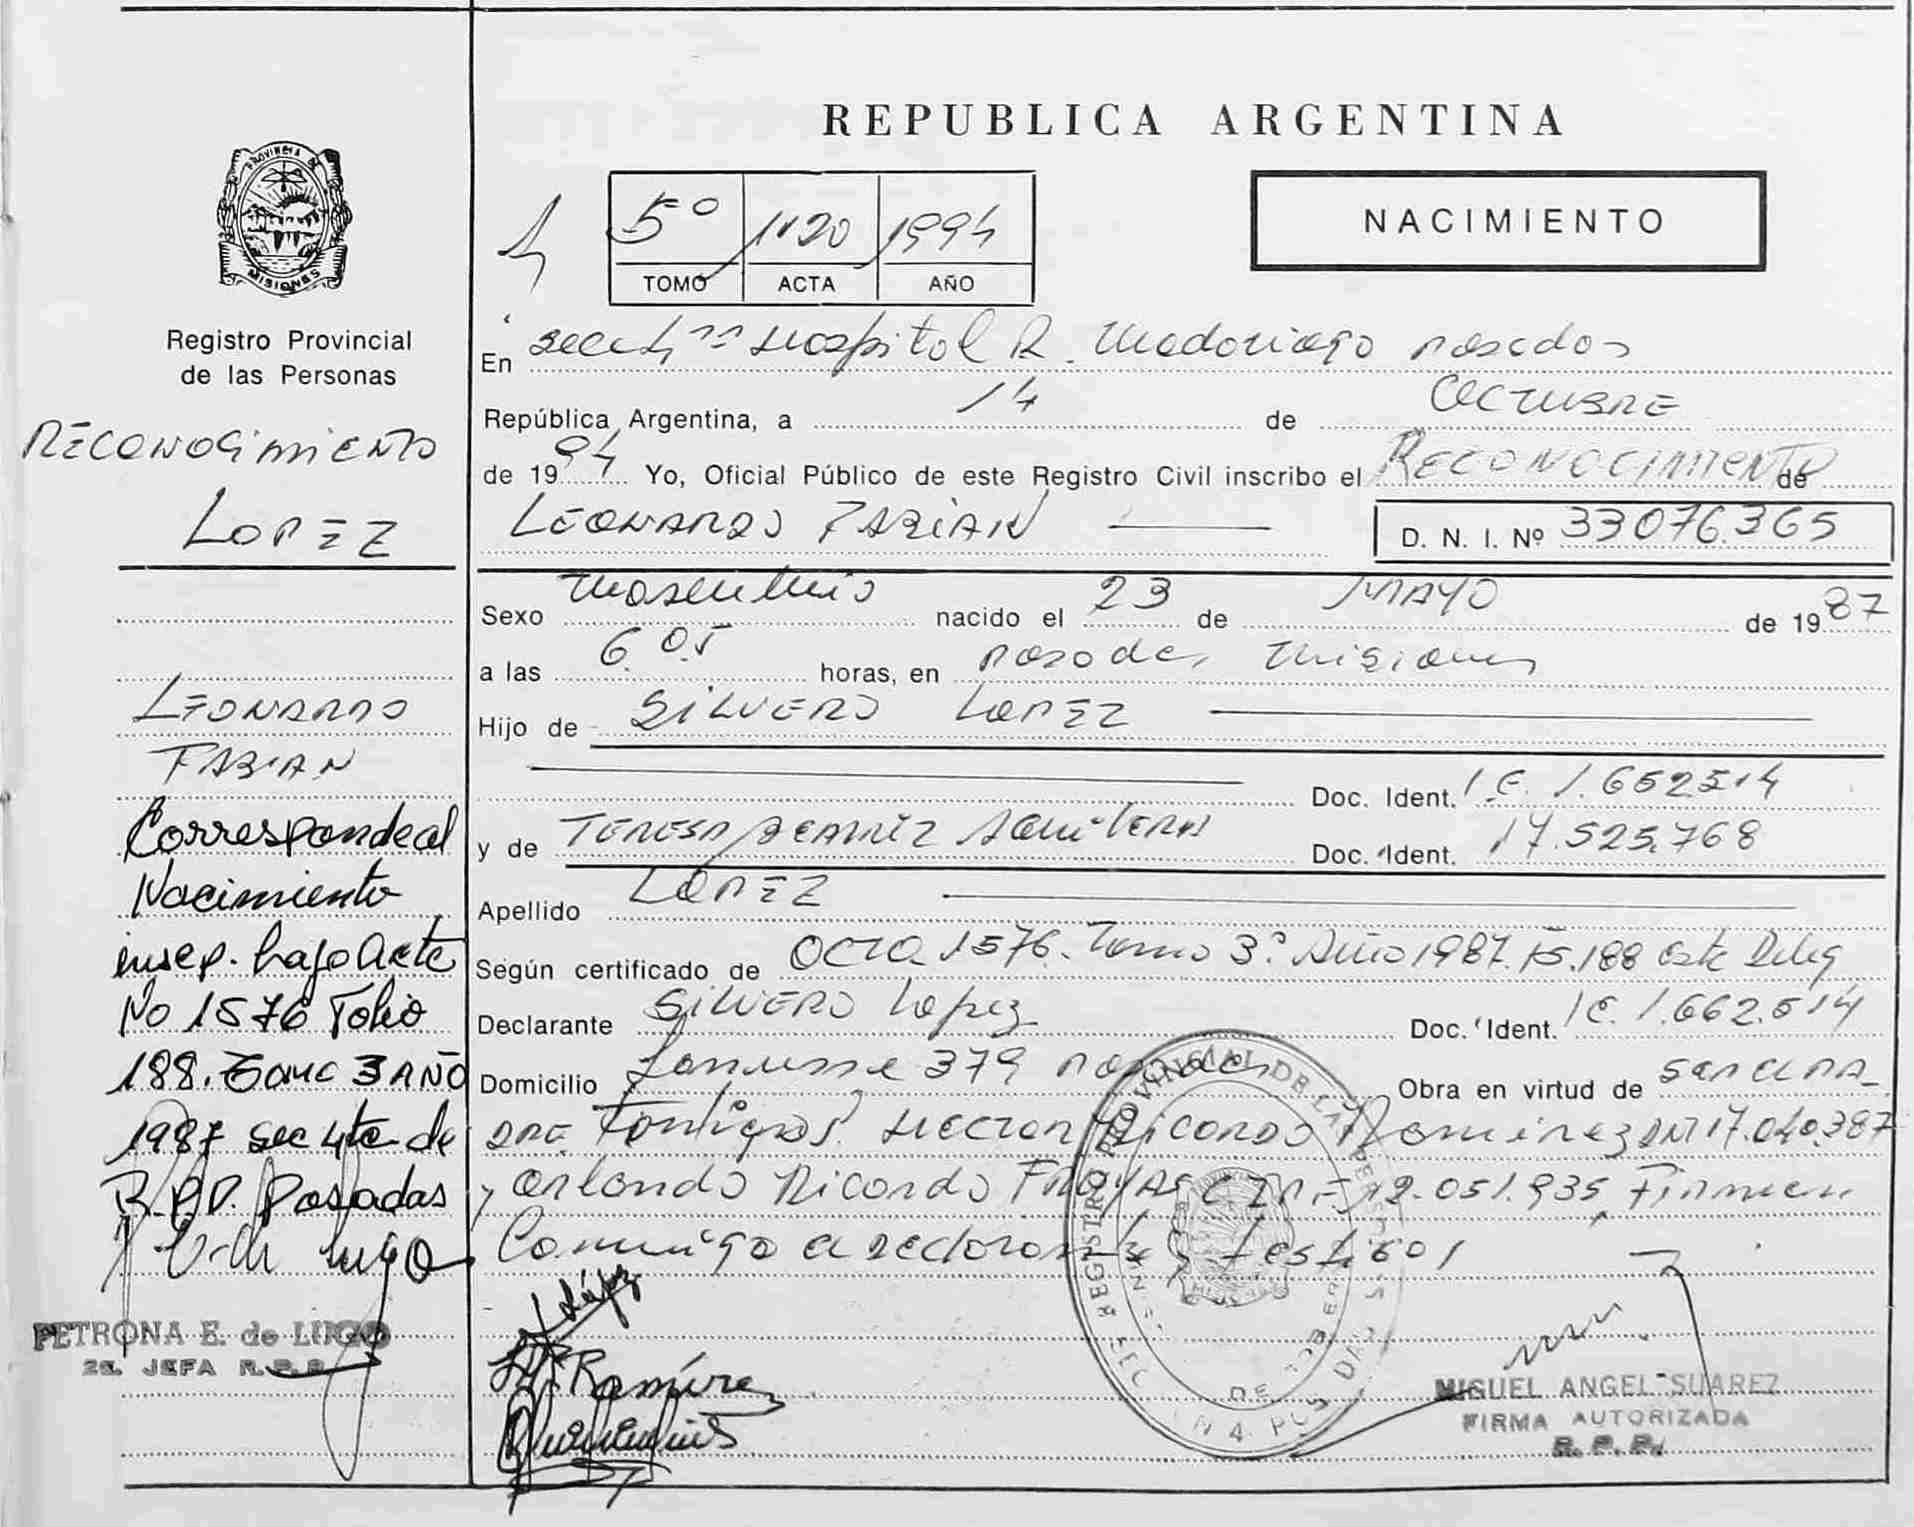 REPUBLICA ARGENTINA
PROVINCIA DE
MISIONES
Registro Provincial
de las Personas
RECONOCIMIENTO
LOPEZ
LEONARDO
FABIAN
Corresponde al
Nacimiento
inscp. bajo Acta
No 1576 Folio
188. Tomo 3 AÑO
1987 Sec 4ta de
R.P.P. Posadas
PETRONA E. de LUGO
2a. JEFA R.P.P.
5º 1120 1994
TOMO ACTA AÑO
NACIMIENTO
En Secc 4ta Hospital R. Madariaga Posadas
República Argentina, a 14 de OCTUBRE
de 1994 Yo, Oficial Público de este Registro Civil inscribo el RECONOCIMIENTO de
LEONARDO FABIAN
D. N. I. Nº 33076.365
Sexo Masculino nacido el 23 de MAYO de 1987
a las 6.05 horas, en Posadas Misiones
Hijo de SILVERO LOPEZ
Doc. Ident. 1.652514
y de TERESA BEATRIZ AQUILERA Doc. Ident. 17.525.768
Apellido LOPEZ
Según certificado de ACTA 1576. Tomo 3º Año 1987. Fº.188 Esta Deleg
Declarante SILVERO Lopez Doc. Ident. 1.662.514
Domicilio Lanusse 379 Posadas Obra en virtud de
Testigos Hector Ricardo Ramirez DNI 17.040.387
y Orlando Ricardo 12.051.935, Firman
Conmigo el declarante y testigos
López
Ramírez
REGISTRO PROVINCIAL DE LAS PERSONAS
MIGUEL ANGEL SUAREZ
FIRMA AUTORIZADA
R. P. P.